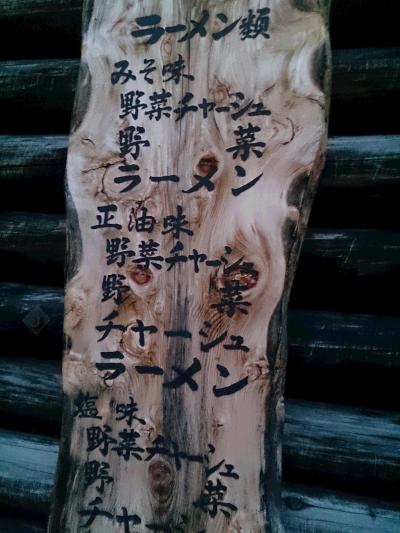 ラーメン類
みそ味
野菜チャーシュ
野菜
ラーメン
正油味
野菜チャーシュ
野菜
チャーシュ
ラーメン
塩味
野菜チャーシュ
野菜
チャーシ